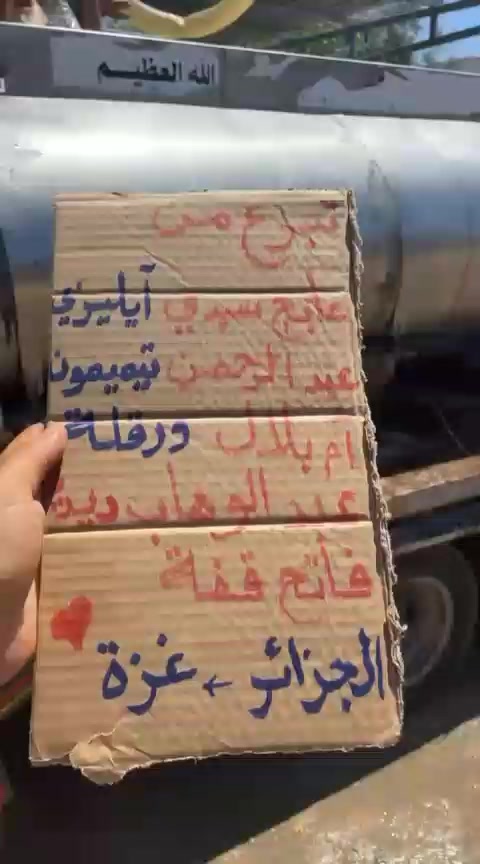 الله العظيم
تبرع من
عايج سيدي آيليزي
عبد الرحمن تيميمون
ام بلال ورقلة
عبد الوهاب ديرة
فاتح قفة
الجزائر ← غزة